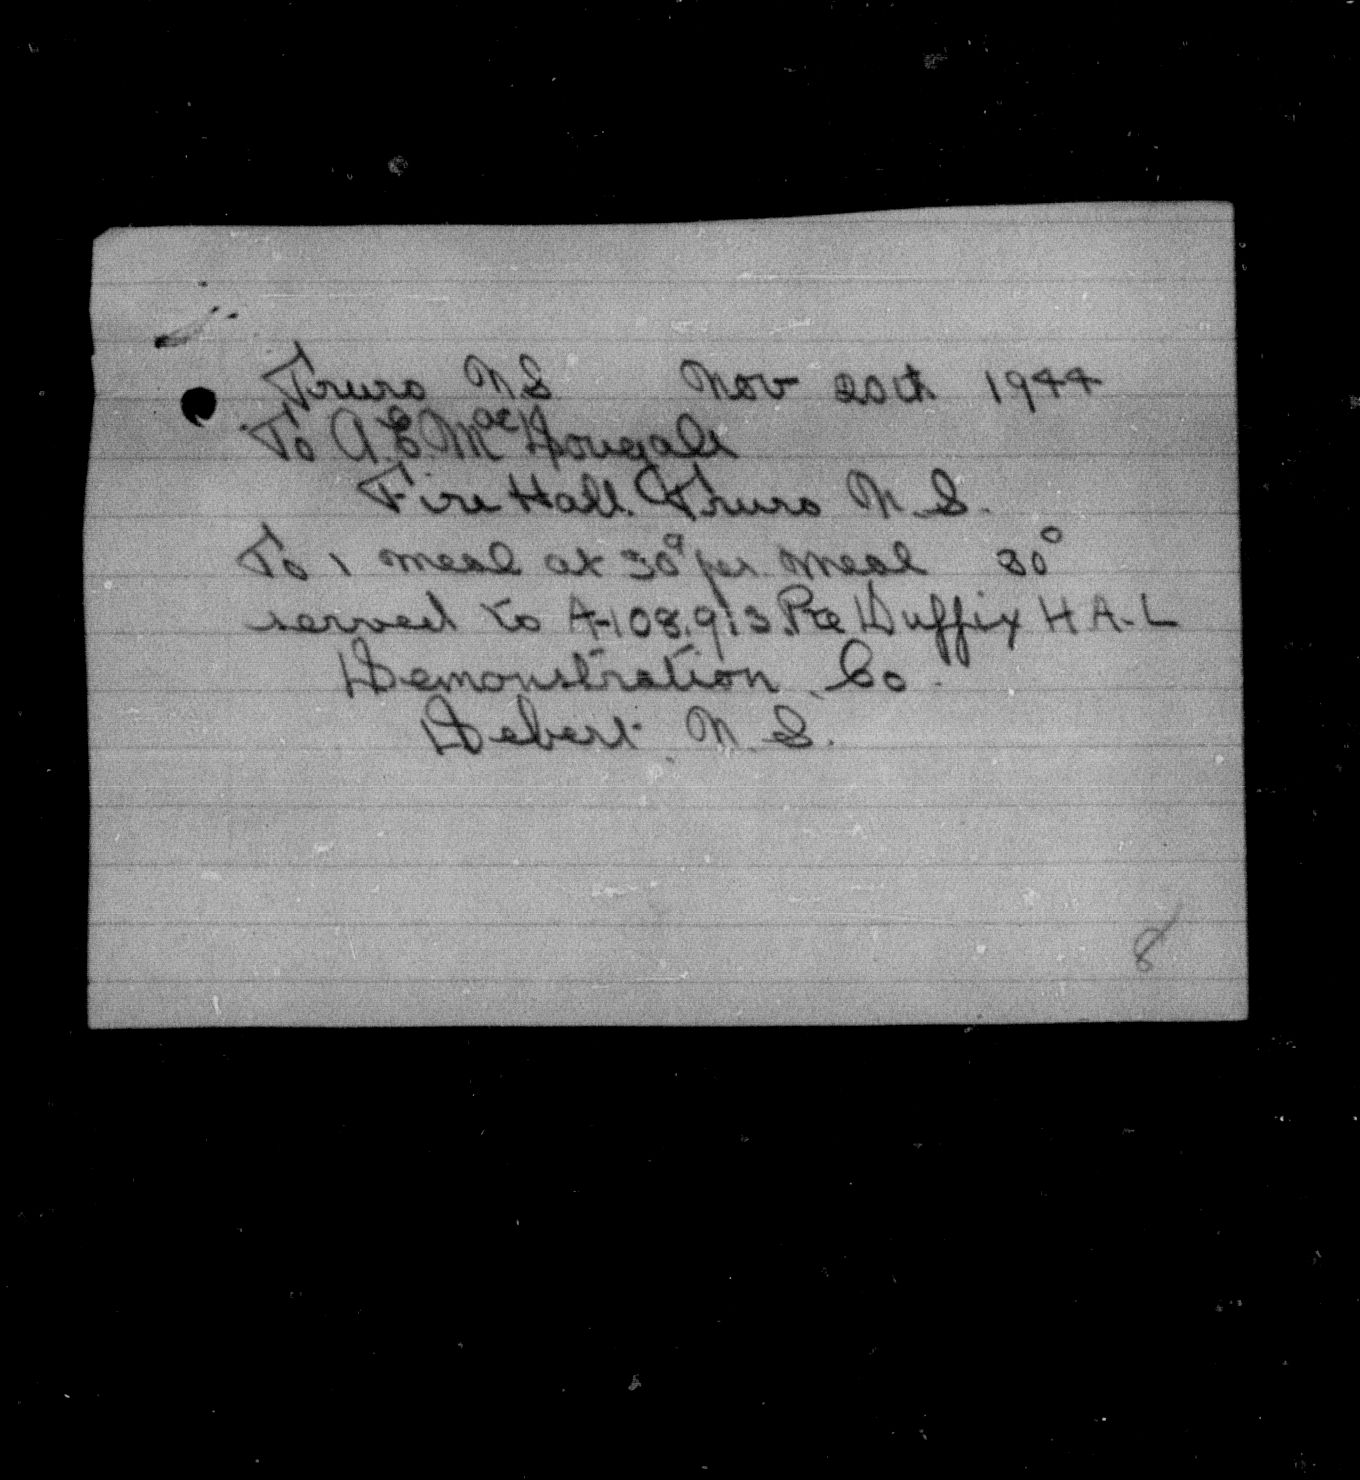 Truro N S Nov 20th 1944
To A.E. MacDougall
Fire Hall. Truro N. S.
To 1 meal at 30° per meal 30°
served to A-108,913 Pte Duffix H A. L
Demonstration Co.
Debert N. S.
8